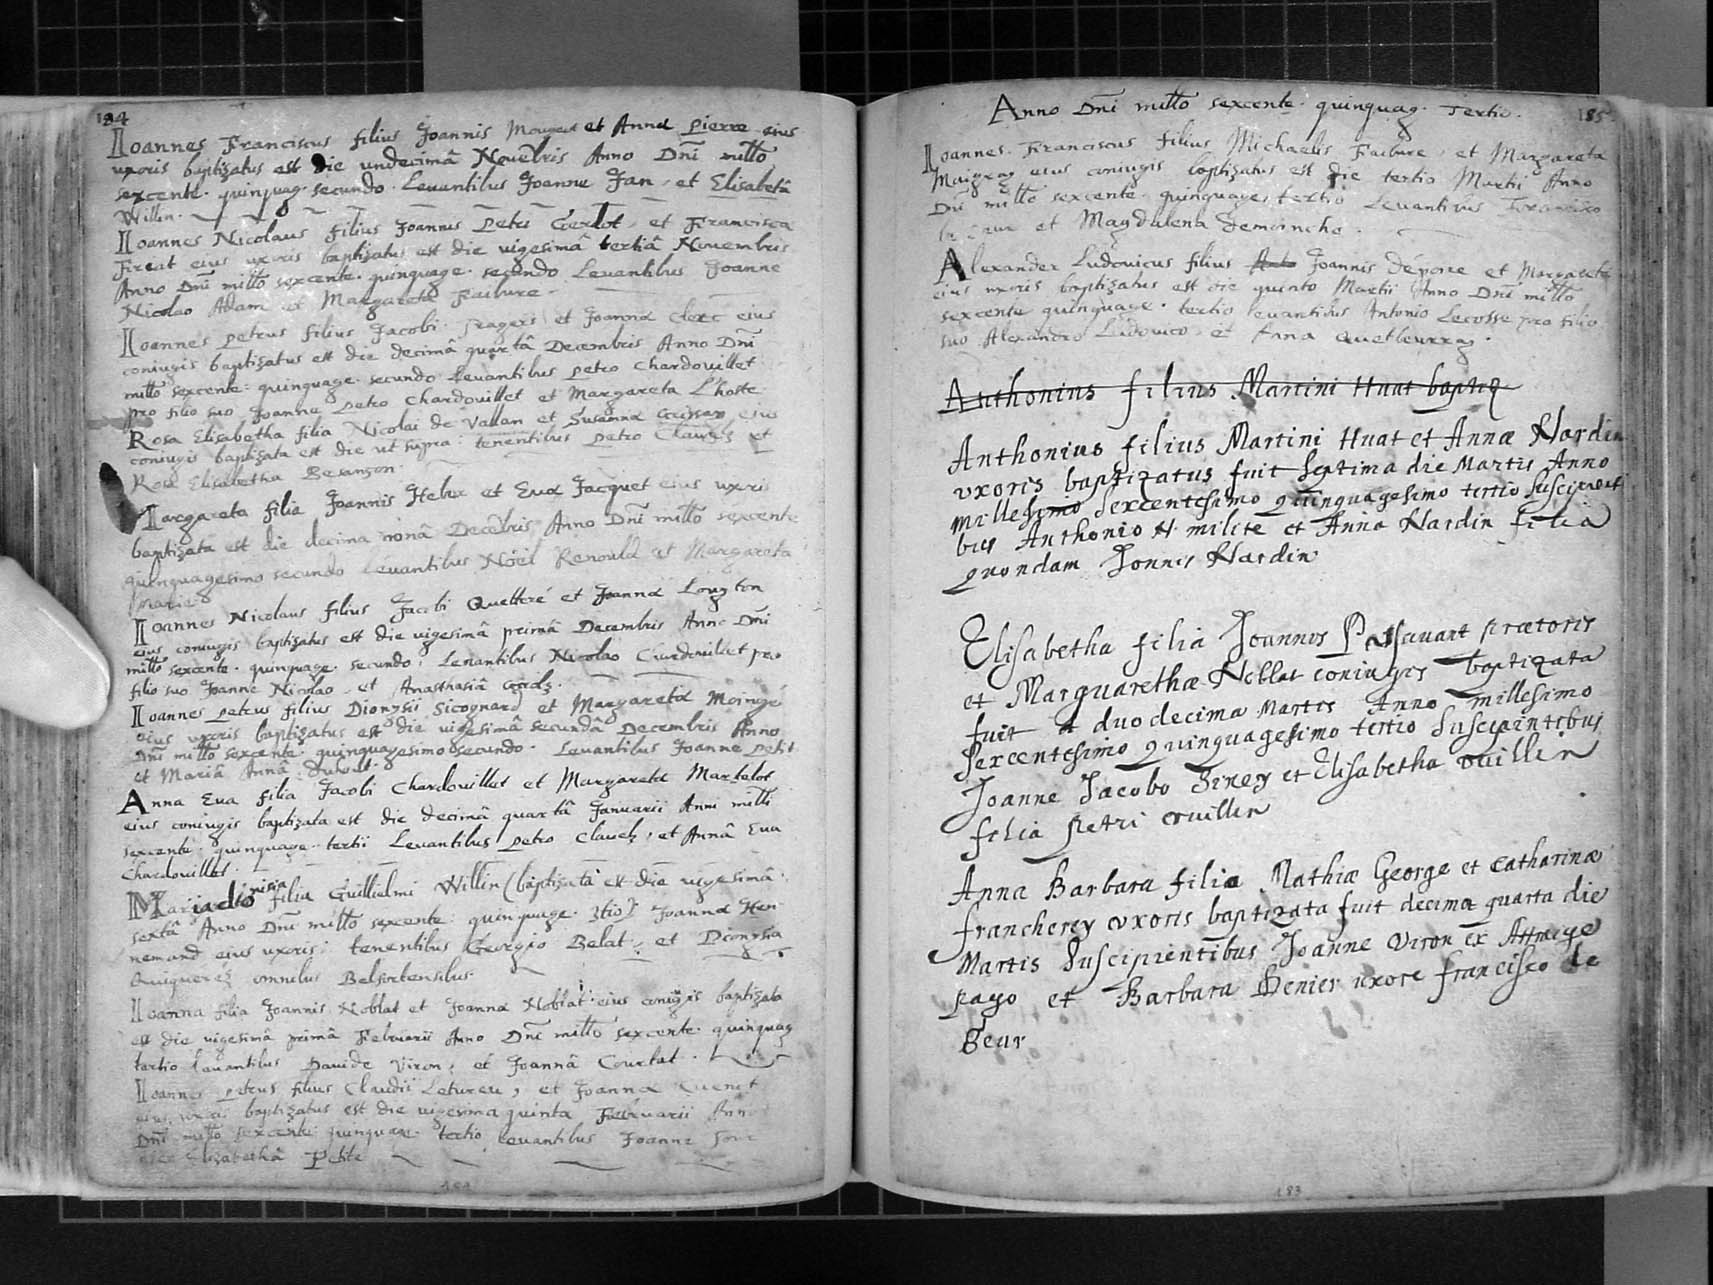 184
Ioannes Franciscus filius Joannis Mougeut et Annæ Pierre eius
uxoris baptizatus est die undecimâ Novẽbris Anno Dñi millõ
sexcente. quinquag. secundo. Levantibus Joanne Jan, et Elisabetâ
Willin.
Ioannes Nicolaus filius Joannis Petri Gerlot, et Francisca
eius uxoris baptizatus est die vigesimâ tertiâ Novembris
Anno Dñi millõ sexcente. quinquage. secundo Levantibus Joanne
Nicolao Adam et Margareta Faibure.
Ioannes Petrus filius Jacobi et Joannæ Clerc eius
coniugis baptizatus est die decimâ quartâ Decembris Anno Dñi
millõ sexcente. quinquage. secundo Levantibus Petro Chardouillet
pro filio suo Joanne Petro Chardouillet et Margareta L'hoste
Rosa Elisabetha filia Nicolai de Vallan et Susanna eius
coniugis baptizata est die ut supra: tenentibus Petro Clauez et
Rosa Elisabetha Besançon.
Margareta filia Joannis Heber et Evæ Jacquet eius uxoris
baptizata est die decima nonâ Decẽbris Anno Dñi millõ sexcente
quinquagesimo secundo Levantibus Nöel Renould et Margareta
Ioannes Nicolaus filius Jacobi Quelleré et Joannæ
eius coniugis baptizatus est die vigesimâ primâ Decembris Anno Dñi
millõ sexcente. quinquage. secundo. Levantibus Nicolao pro
filio suo Joanne Nicolao, et Anasthasiâ
Ioannes Petrus filius Dionysii Sicognard et Margaretæ
eius uxoris baptizatus est die vigesimâ secundâ Decembris Anno
Dñi millõ sexcente. quinquagesimo secundo. Levantibus Joanne Petit
et Mariâ Annâ
Anna Eva filia Jacobi Chardouillet et Margaretæ Martelot
eius coniugis baptizata est die decimâ quartâ Januarii Anni milli
sexcente. quinquage. tertii Levantibus Petro Clauez, et Annâ Eva
Chardouillet.
Maria dionisia filia Guillielmi Willin (baptizata est die vigesimâ
sextâ Anno Dñi millõ sexcente. quinquage. 3tio) Joanna Hen-
nemand eius uxoris: tenentibus Georgio Belat, et Dionysia
Quiquerez omnibus Belfortensibus.
Ioanna filia Joannis Noblat et Joannæ Noblat eius coniugis baptizata
est die vigesimâ primâ Februarii Anno Dñi millõ sexcente. quinquag
tertio levantibus Davide Viron, et Joannâ Courtat.
Ioannes Petrus filius Claudii Letureu, et Joannæ Quenot
eius uxoris baptizatus est die vigesima quinta Februarii Anno
Dñi millõ sexcente quinquage. tertio levantibus Joanne
Elizabethâ Petite
184
Anno Dñi millõ sexcente. quinquag. Tertio.
185
Ioannes. Franciscus filius Michaelis Faibure, et Margareta
eius coniugis baptizatus est die tertio Martii Anno
Dñi millõ sexcente. quinquages tertio Levantibus Francisco
et Magdalena Jemoinche.
Alexander Ludovicus filius Joannis Déporre et Margareta
eius uxoris baptizatus est die quinto Martii Anno Dñi millõ
sexcente quinquage. tertio levantibus Antonio Lecosse pro filio
suo Alexandro Ludovico, et Anna
Anthonius filius Martini Huat baptiz
Anthonius filius Martini Huat et Annæ Nardin
vxoris baptizatus fuit septima die Martis Anno
Millesimo sexcentesimo quinquagesimo tertio suscipienti
bus Anthonio N. milite et Anna Nardin filia
quondam Jonnis Nardin
Elisabetha filia Joannis prætoris
et Marguarethæ Noblat coniugis baptizata
fuit duodecima Martis Anno millesimo
sexcentesimo quinquagesimo tertio suscipientibus
Joanne Jacobo et Elisabetha vuillin
filia Petri vuillin
Anna Barbara filia Mathiæ George et Catharinæ
francherey vxoris baptizata fuit decima quarta die
Martis suscipientibus Joanne Viron ex
pago et Barbara Henier uxore francisco le
Beur
183